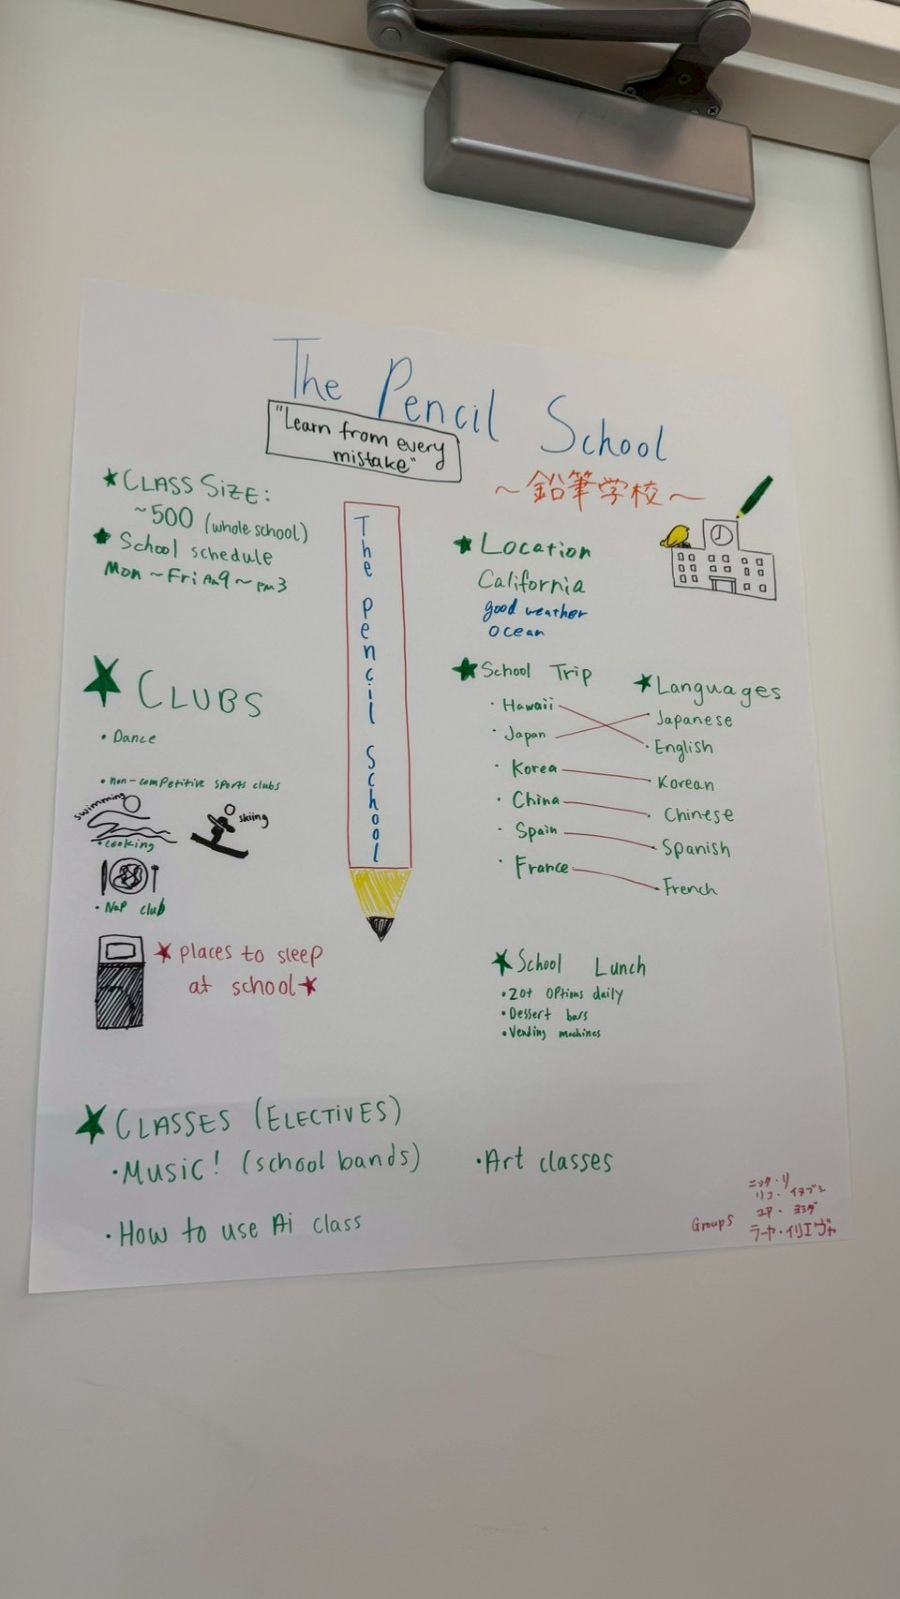 The Pencil School
"Learn from every
mistake"
~鉛筆学校~
CLASS SIZE:
~500 (whole school)
School schedule
Mon ~ Fri Am9 ~ pm3
The Pencil School
Location
California
good weather
ocean
CLUBS
• Dance
• non-competitive sports clubs
swimming
skiing
• cooking
• Nap club
places to sleep
at school
School Trip
• Hawaii
• Japan
• Korea
• China
• Spain
• France
Languages
Japanese
English
Korean
Chinese
Spanish
French
School Lunch
• 20+ options daily
• Dessert bars
• Vending machines
CLASSES (ELECTIVES)
• Music! (school bands)
• Art classes
• How to use Ai class
Groups
ニック・リ
ラーヤ・イリエヴァ